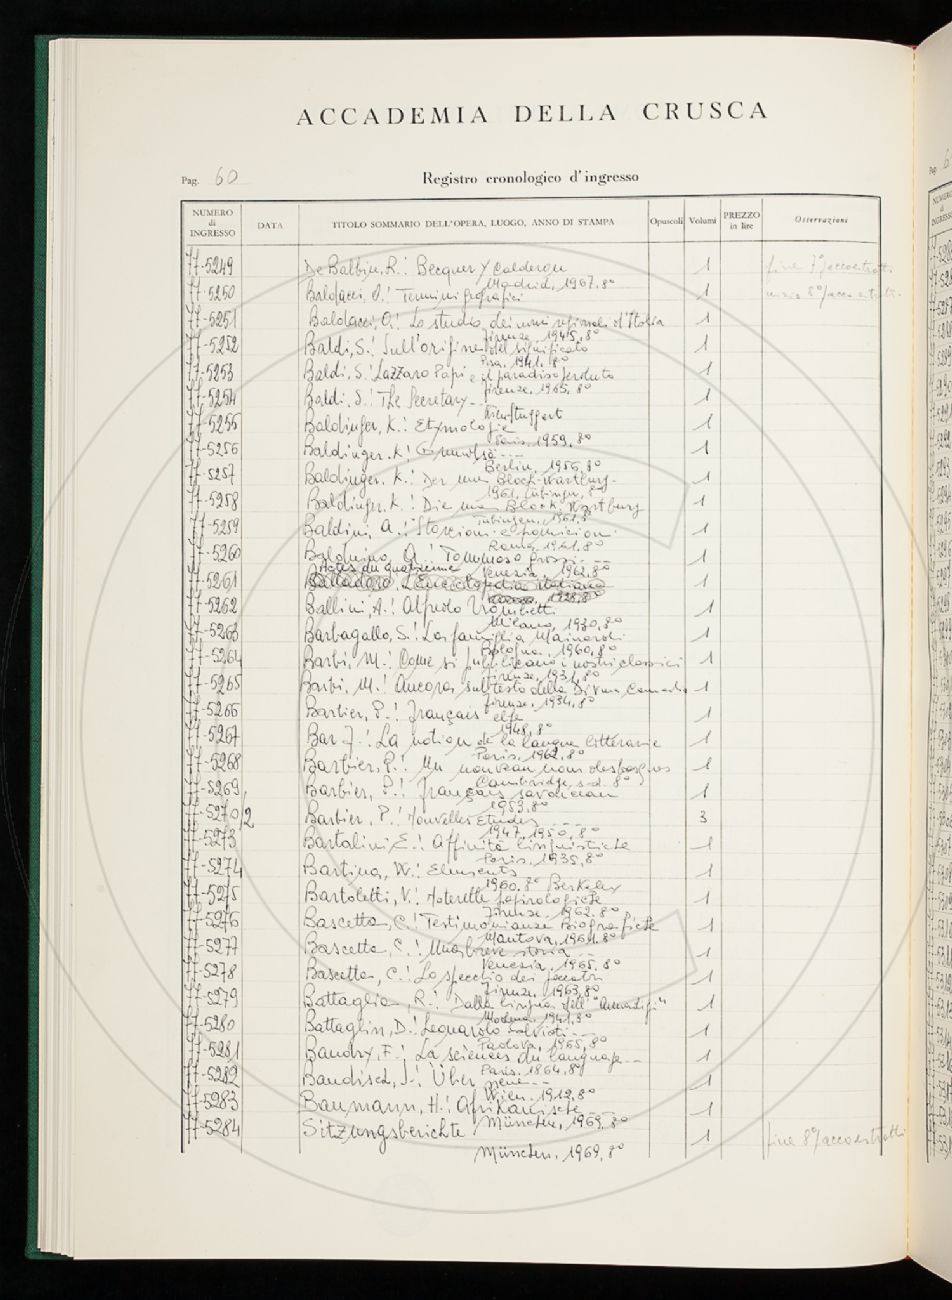 ACCADEMIA DELLA CRUSCA
Pag. 60
Registro cronologico d'ingresso
NUMERO di INGRESSO DATA TITOLO SOMMARIO DELL'OPERA, LUOGO, ANNO DI STAMPA Opuscoli Volumi PREZZO in lire Osservazioni
77-5249 De Balbin, R.: Becquer y Calderon 1 fine 7°
Madrid, 1967, 8°
77-5250 Baldacci, O.: Termini geografici 1
77-5251 Baldacci, O.: Lo studio dei nomi regionali d'Italia 1
Firenze, 1945, 8°
77-5252 Baldi, S.: Sull'origine del significato 1
Pisa, 1941, 8°
77-5253 Baldi, S.: Lazzaro Papi e il paradiso perduto 1
Firenze, 1965, 8°
77-5254 Baldi, S.: The Secretary 1
77-5255 Baldinger, K.: Etymologie 1
Paris, 1959, 8°
77-5256 Baldinger, K.: 1
Berlin, 1956, 8°
77-5257 Baldinger, K.: Der neue Bloch-Wartburg 1
1961, Tübingen, 8°
77-5258 Baldinger, K.: Die neue Bloch, Wartburg 1
Tübingen, 1961, 8°
77-5259 Baldini, A.: 1
Roma, 1941, 8°
77-5260 Tommaso Grossi 1
Venezia, 1942, 8°
77-5261 Actes du quatrième 1
77-5262 Ballini, A.: Alfredo Trombetti 1
Milano, 1930, 8°
77-5263 Barbagallo, S.: La famiglia Mainardi 1
Bologna, 1960, 8°
77-5264 Barbi, M.: Come si pubblicano i nostri classici 1
Firenze, 1934, 8°
77-5265 Barbi, M.: Ancora sul testo della Divina Commedia 1
Firenze, 1934, 8°
77-5266 Barbier, P.: Français elfe 1
1948, 8°
77-5267 Bar J.: La notion de la langue littéraire 1
Paris, 1962, 8°
77-5268 Barbier, P.: Un nouveau nom 1
Cambridge, s.d. 8°
77-5269 Barbier, P.: Français savoureau 1
1953, 8°
77-5270/2 Barbier, P.: Nouvelles Etudes 3
1947, 1950, 8°
77-5273 Bartolini, E.: Affinità linguistiche 1
Paris, 1935, 8°
77-5274 Bartina, W.: Elements 1
1960, 8° Berkeley
77-5275 Bartoletti, V.: Noterelle papirologiche 1
Firenze, 1962, 8°
77-5276 Bascetta, C.: Testimonianze Biografiche 1
Mantova, 1961, 8°
77-5277 Bascetta, C.: Una breve storia 1
Venezia, 1965, 8°
77-5278 Bascetta, C.: Lo specchio dei peccatri 1
Firenze, 1963, 8°
77-5279 Battaglia, R.: Dalla lingua dell' "Amadigi" 1
Modena, 1941, 8°
77-5280 Battaglin, D.: Leonardo Salviati 1
Padova, 1965, 8°
77-5281 Baudry, F.: La sciences du language 1
Paris, 1864, 8°
77-5282 Baudisch, J.: Über 1
Wien, 1912, 8°
77-5283 Baumann, H.: Afrikanische 1
München, 1969, 8°
77-5284 Sitzungsberichte 1 fine 8°
München, 1969, 8°